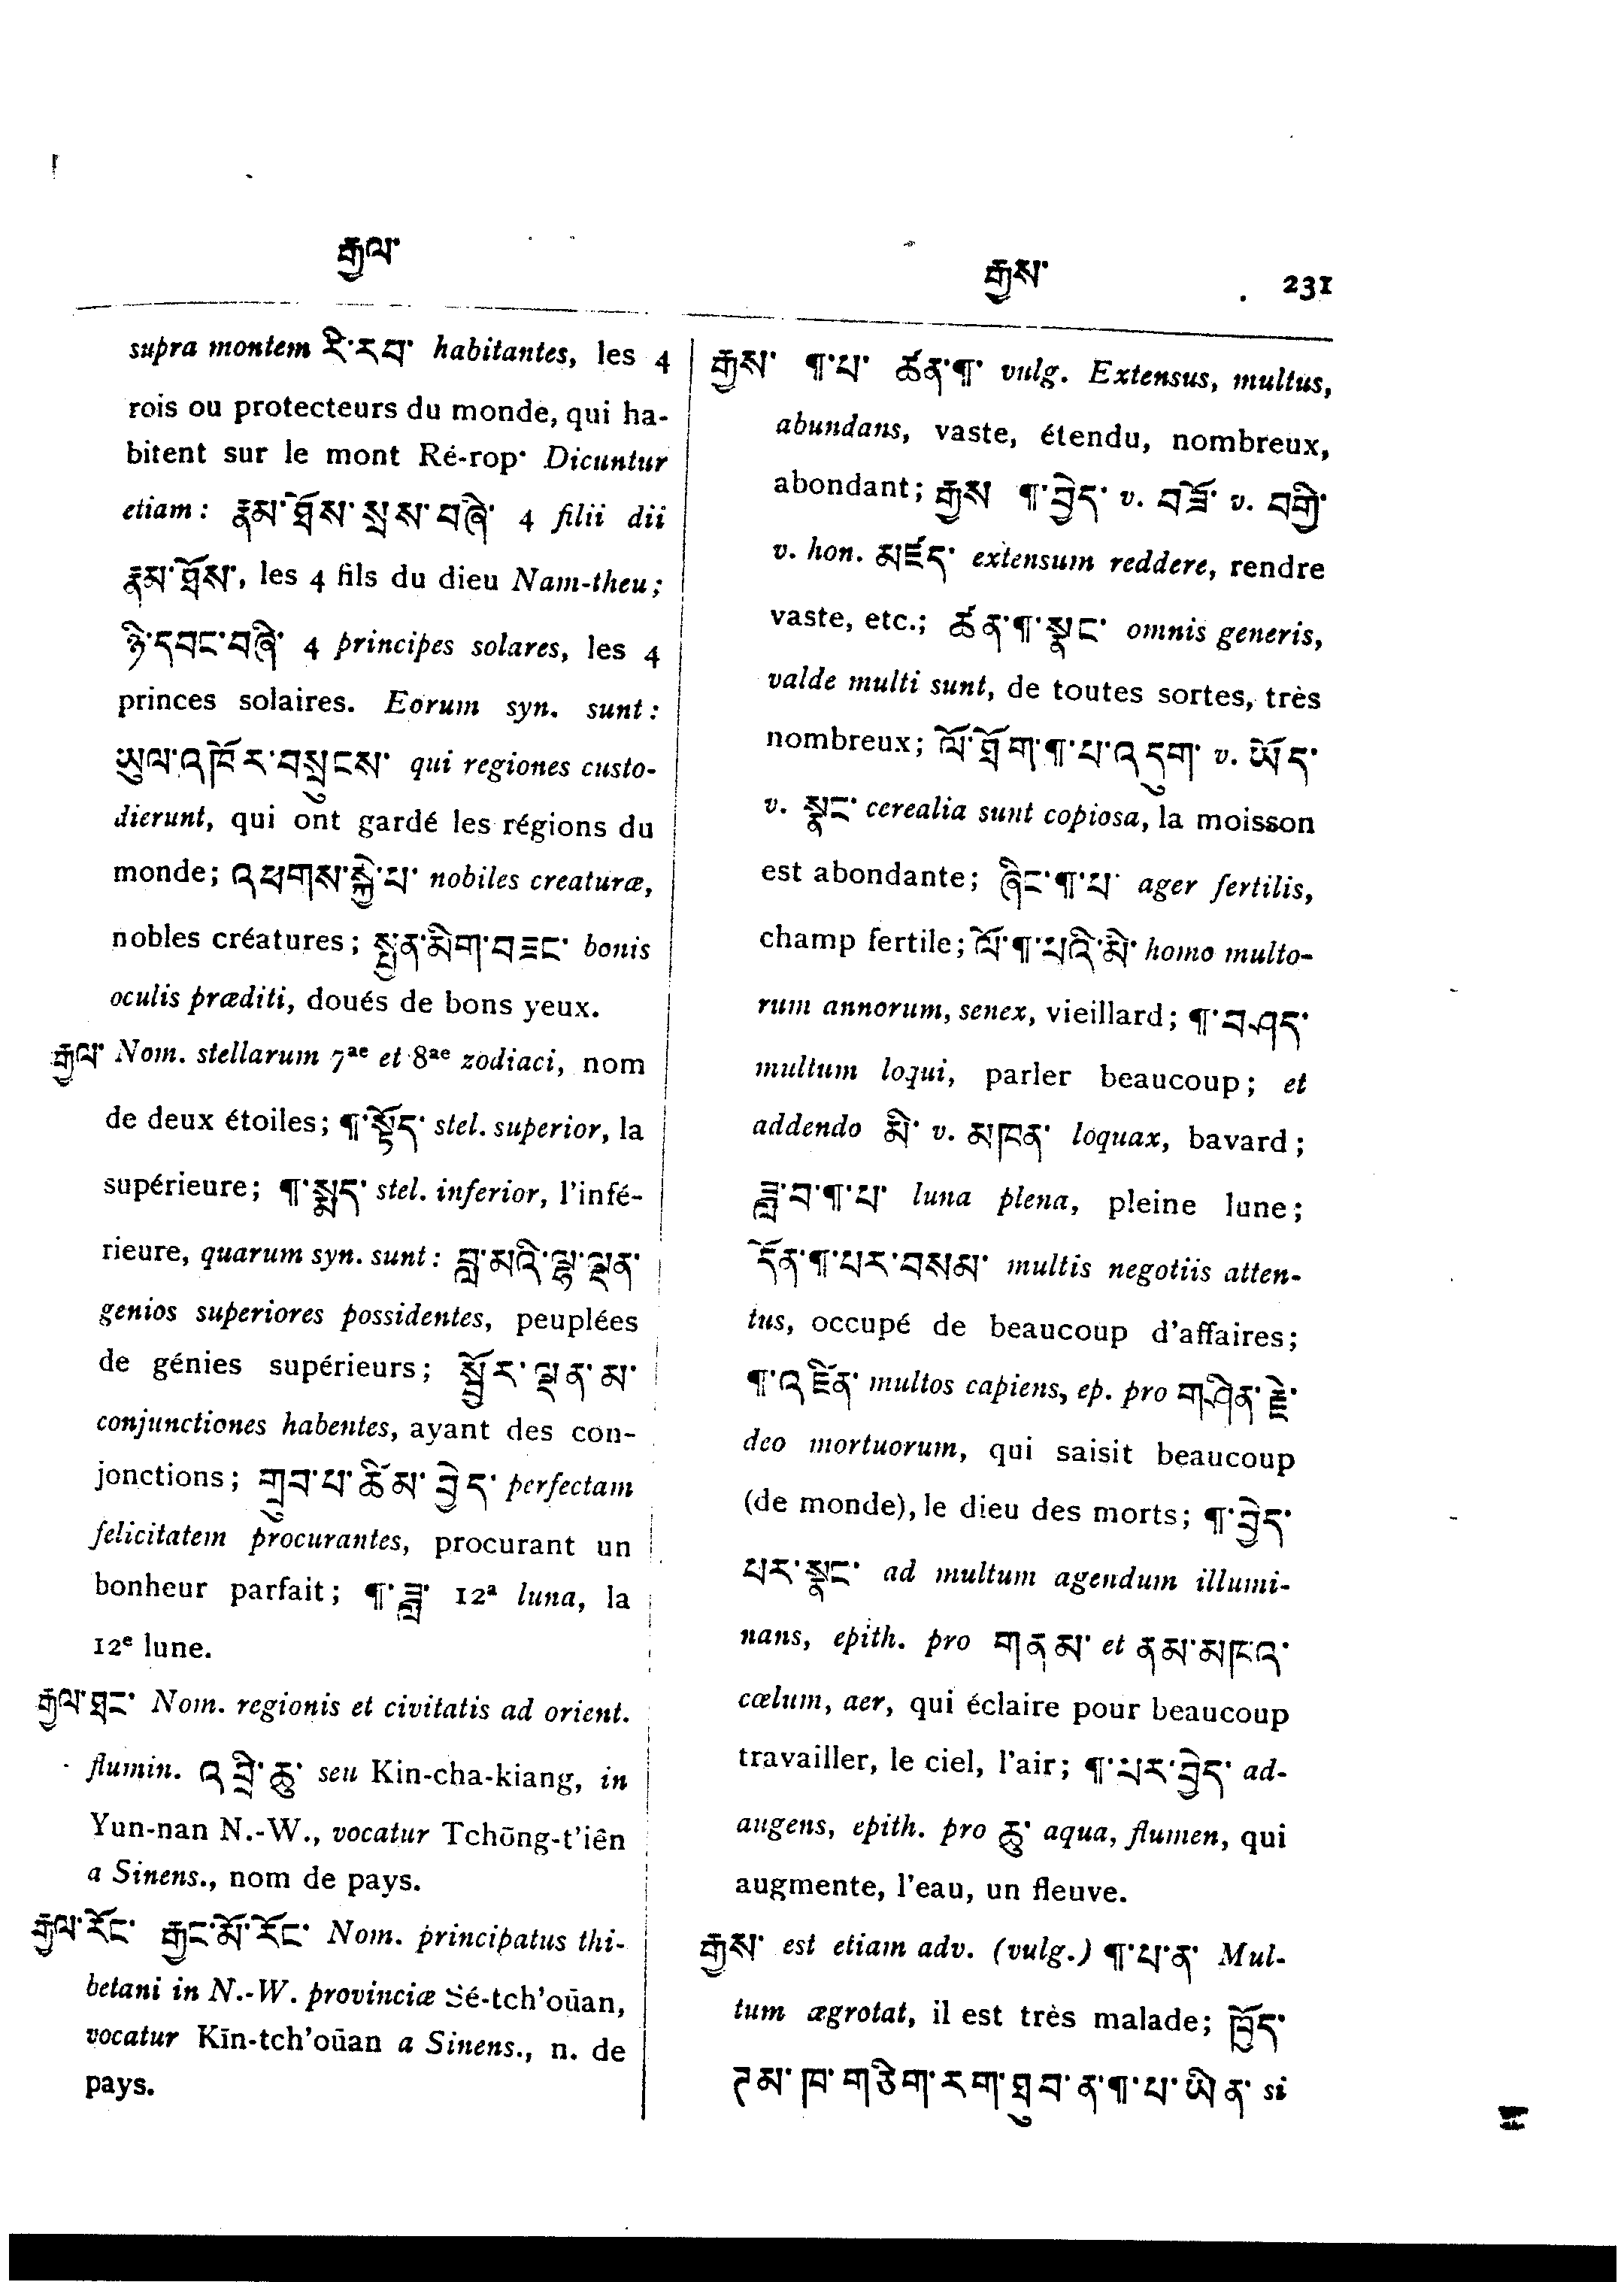 རྒྱལ་
རྒྱས་ 231
supra montem རི་རབ་ habitantes, les 4
rois ou protecteurs du monde, qui ha-
bitent sur le mont Ré-rop· Dicuntur
etiam: རྣམ་ཐོས་སྲས་བཞི་ 4 filii dii
རྣམ་ཐོས་, les 4 fils du dieu Nam-theu;
ཉི་དབང་བཞི་ 4 principes solares, les 4
princes solaires. Eorum syn. sunt:
ཡུལ་འཁོར་བསྲུངས་ qui regiones custo-
dierunt, qui ont gardé les régions du
monde; འཕགས་སྐྱེ་པ་ nobiles creaturæ,
nobles créatures; སྤྱན་མིག་བཟང་ bonis
oculis præditi, doués de bons yeux.
རྒྱལ་ Nom. stellarum 7ae et 8ae zodiaci, nom
de deux étoiles; ¶་སྟོད་ stel. superior, la
supérieure; ¶་སྨད་ stel. inferior, l'infé-
rieure, quarum syn. sunt: བླ་མའི་ལྷ་ལྡན་
genios superiores possidentes, peuplées
de génies supérieurs; སྦྱོར་ལྡན་མ་
conjunctiones habentes, ayant des con-
jonctions; གྲུབ་པ་ཚིམ་བྱེད་ perfectam
felicitatem procurantes, procurant un
bonheur parfait; ¶་ཟླ་ 12a luna, la
12e lune.
རྒྱལ་ཐང་ Nom. regionis et civitatis ad orient.
flumin. འབྲི་ཆུ་ seu Kin-cha-kiang, in
Yun-nan N.-W., vocatur Tchōng-t'iên
a Sinens., nom de pays.
རྒྱལ་རོང་ རྒྱང་མོ་རོང་ Nom. principatus thi-
betani in N.-W. provinciæ Sé-tch'oūan,
vocatur Kīn-tch'oūan a Sinens., n. de
pays.
རྒྱས་ ¶་པ་ ཚན་¶་ vulg. Extensus, multus,
abundans, vaste, étendu, nombreux,
abondant; རྒྱས ¶་བྱེད་ v. བཟོ་ v. བགྱི་
v. hon. མཛད་ extensum reddere, rendre
vaste, etc.; ཚན་¶་སྣང་ omnis generis,
valde multi sunt, de toutes sortes, très
nombreux; ལོ་ཐོག་¶་པ་འདུག་ v. ཡོད་
v. སྣང་ cerealia sunt copiosa, la moisson
est abondante; ཞིང་¶་པ་ ager fertilis,
champ fertile; ལོ་¶་པའི་མི་ homo multo-
rum annorum, senex, vieillard; ¶་བཤད་
multum loqui, parler beaucoup; et
addendo མི་ v. མཁན་ loquax, bavard;
ཟླ་བ་¶་པ་ luna plena, pleine lune;
དོན་¶་པར་བསམ་ multis negotiis atten-
tus, occupé de beaucoup d'affaires;
¶་འཛིན་ multos capiens, ep. pro གཤིན་རྗེ་
deo mortuorum, qui saisit beaucoup
(de monde), le dieu des morts; ¶་བྱེད་
པར་སྣང་ ad multum agendum illumi-
nans, epith. pro གནམ་ et ནམ་མཁའ་
cœlum, aer, qui éclaire pour beaucoup
travailler, le ciel, l'air; ¶་པར་བྱེད་ ad-
augens, epith. pro ཆུ་ aqua, flumen, qui
augmente, l'eau, un fleuve.
རྒྱས་ est etiam adv. (vulg.) ¶་པ་ན་ Mul-
tum ægrotat, il est très malade; ཁྱོད་
ཏམ་ཁ་གཅིག་རག་ཐུབ་ན་¶་པ་ཡིན་ si